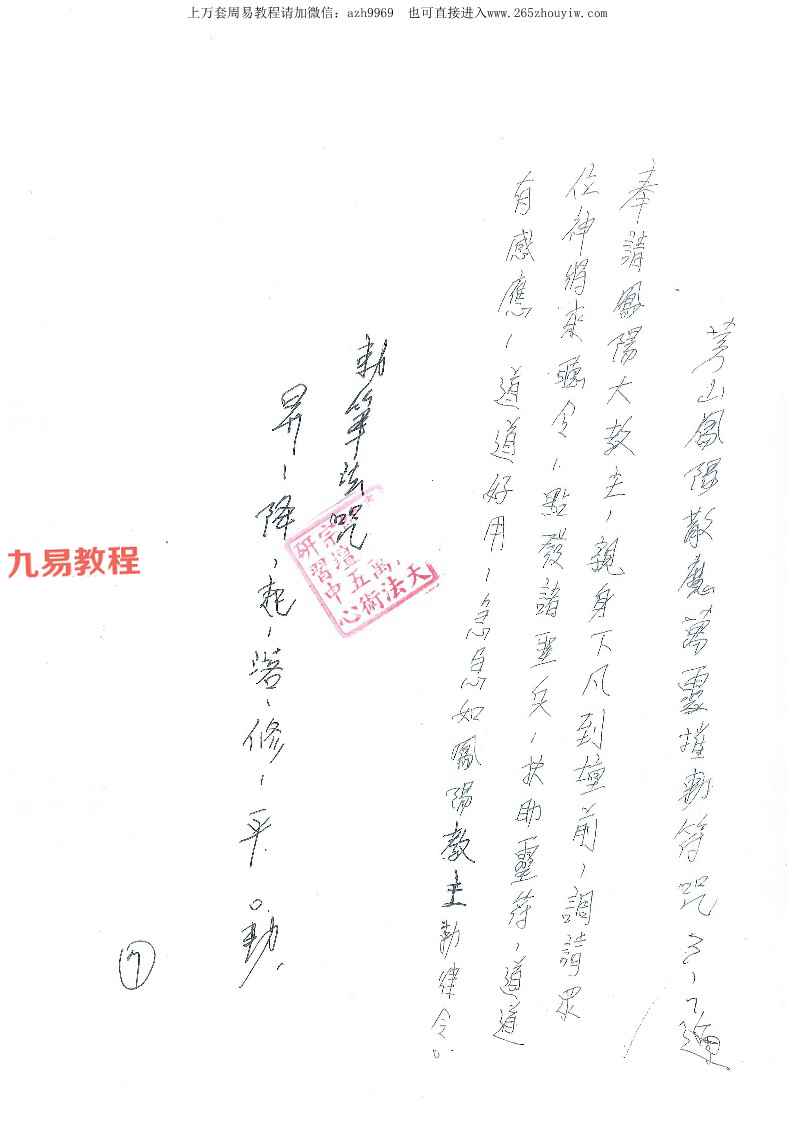 上万套周易教程请加微信：azh9969　也可直接进入www.265zhouyiw.com
茅山鳳陽散應萬靈摧勅符咒 3、7遍
奉請鳳陽大教主，親身下凡到壇前，調請眾
位神將來聽令，點發諸聖兵，扶助靈符，道道
有感應，道道好用，急急如鳳陽教主勅律令。
勅筆法咒
昇、降、起、落、修、平。勅。
7
九易教程
天法術心
萬五中
宗澶習
研